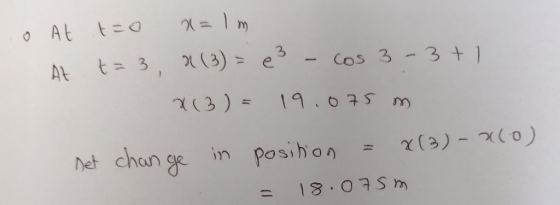 o At t=0 x = 1 m
At t = 3, x(3) = e³ - cos 3 - 3 + 1
x(3) = 19.075 m
net change in position = x(3) - x(0)
= 18.075m